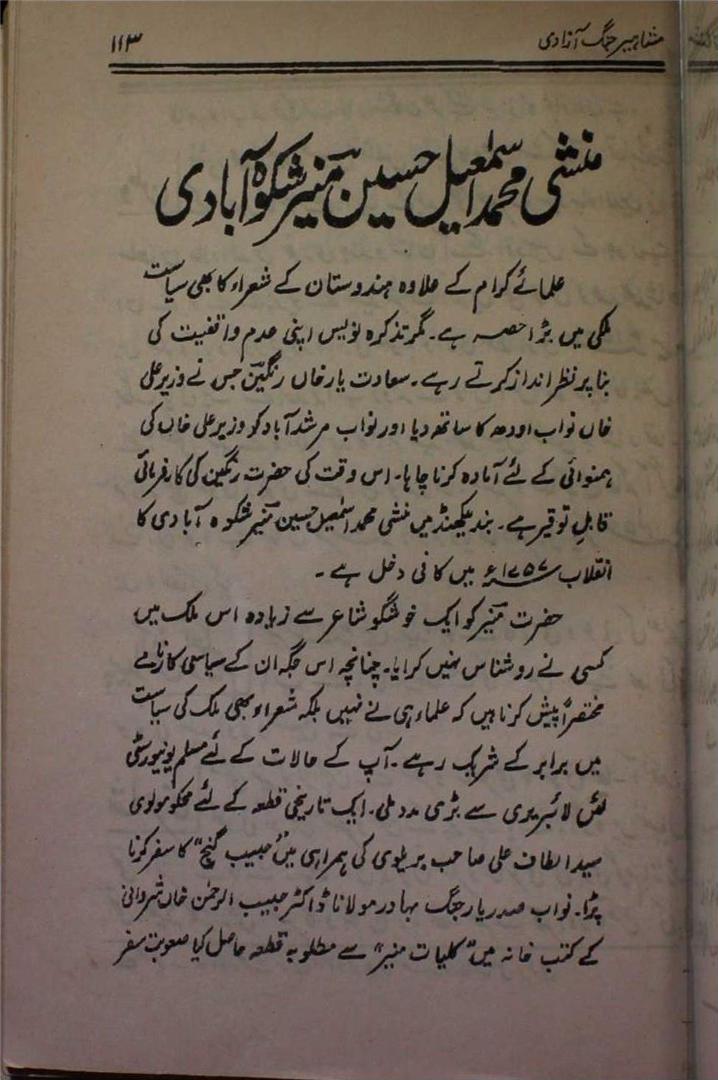 مشاہیر جنگ آزادی
۱۱۳
منشی محمد اسمٰعیل حسین منیر شکوہ آبادی
علمائے کرام کے علاوہ ہندوستان کے شعراء کا بھی سیاست
ملکی میں بڑا حصہ ہے۔ مگر تذکرہ نویس اپنی عدم واقفیت کی
بنا پر نظر انداز کرتے رہے۔ سعادت یار خاں رنگین جس نے وزیر علی
خاں نواب اودھ کا ساتھ دیا اور نواب مرشد آباد کو وزیر علی خاں کی
ہمنوائی کے لئے آمادہ کرنا چاہا۔ اس وقت کی حضرت رنگین کی کارفرمائی
قابل توقیر ہے۔ بندیلکھنڈ میں منشی محمد اسمٰعیل حسین منیر شکوہ آبادی کا
انقلاب ۱۷۵۷ء میں کافی دخل ہے۔
حضرت منیر کو ایک خوشگو شاعر سے زیادہ اس ملک میں
کسی نے روشناس نہیں کرایا۔ چنانچہ اس جگہ ان کے سیاسی کارنامے
مختصراً پیش کرنا ہیں کہ علماء ہی نے نہیں بلکہ شعراء بھی ملک کی سیاست
میں برابر کے شریک رہے۔ آپ کے حالات کے لئے مسلم یونیورسٹی
لٹن لائبریری سے بڑی مدد ملی۔ ایک تاریخی قطعہ کے لئے مجکو مولوی
سید الطاف علی صاحب بریلوی کی ہمراہی میں "حبیب گنج" کا سفر کرنا
پڑا۔ نواب صدر یار جنگ بہادر مولانا ڈاکٹر حبیب الرحمٰن خاں شروانی
کے کتب خانہ میں "کلیات منیر" سے مطلوبہ قطعہ حاصل کیا صعوبت سفر